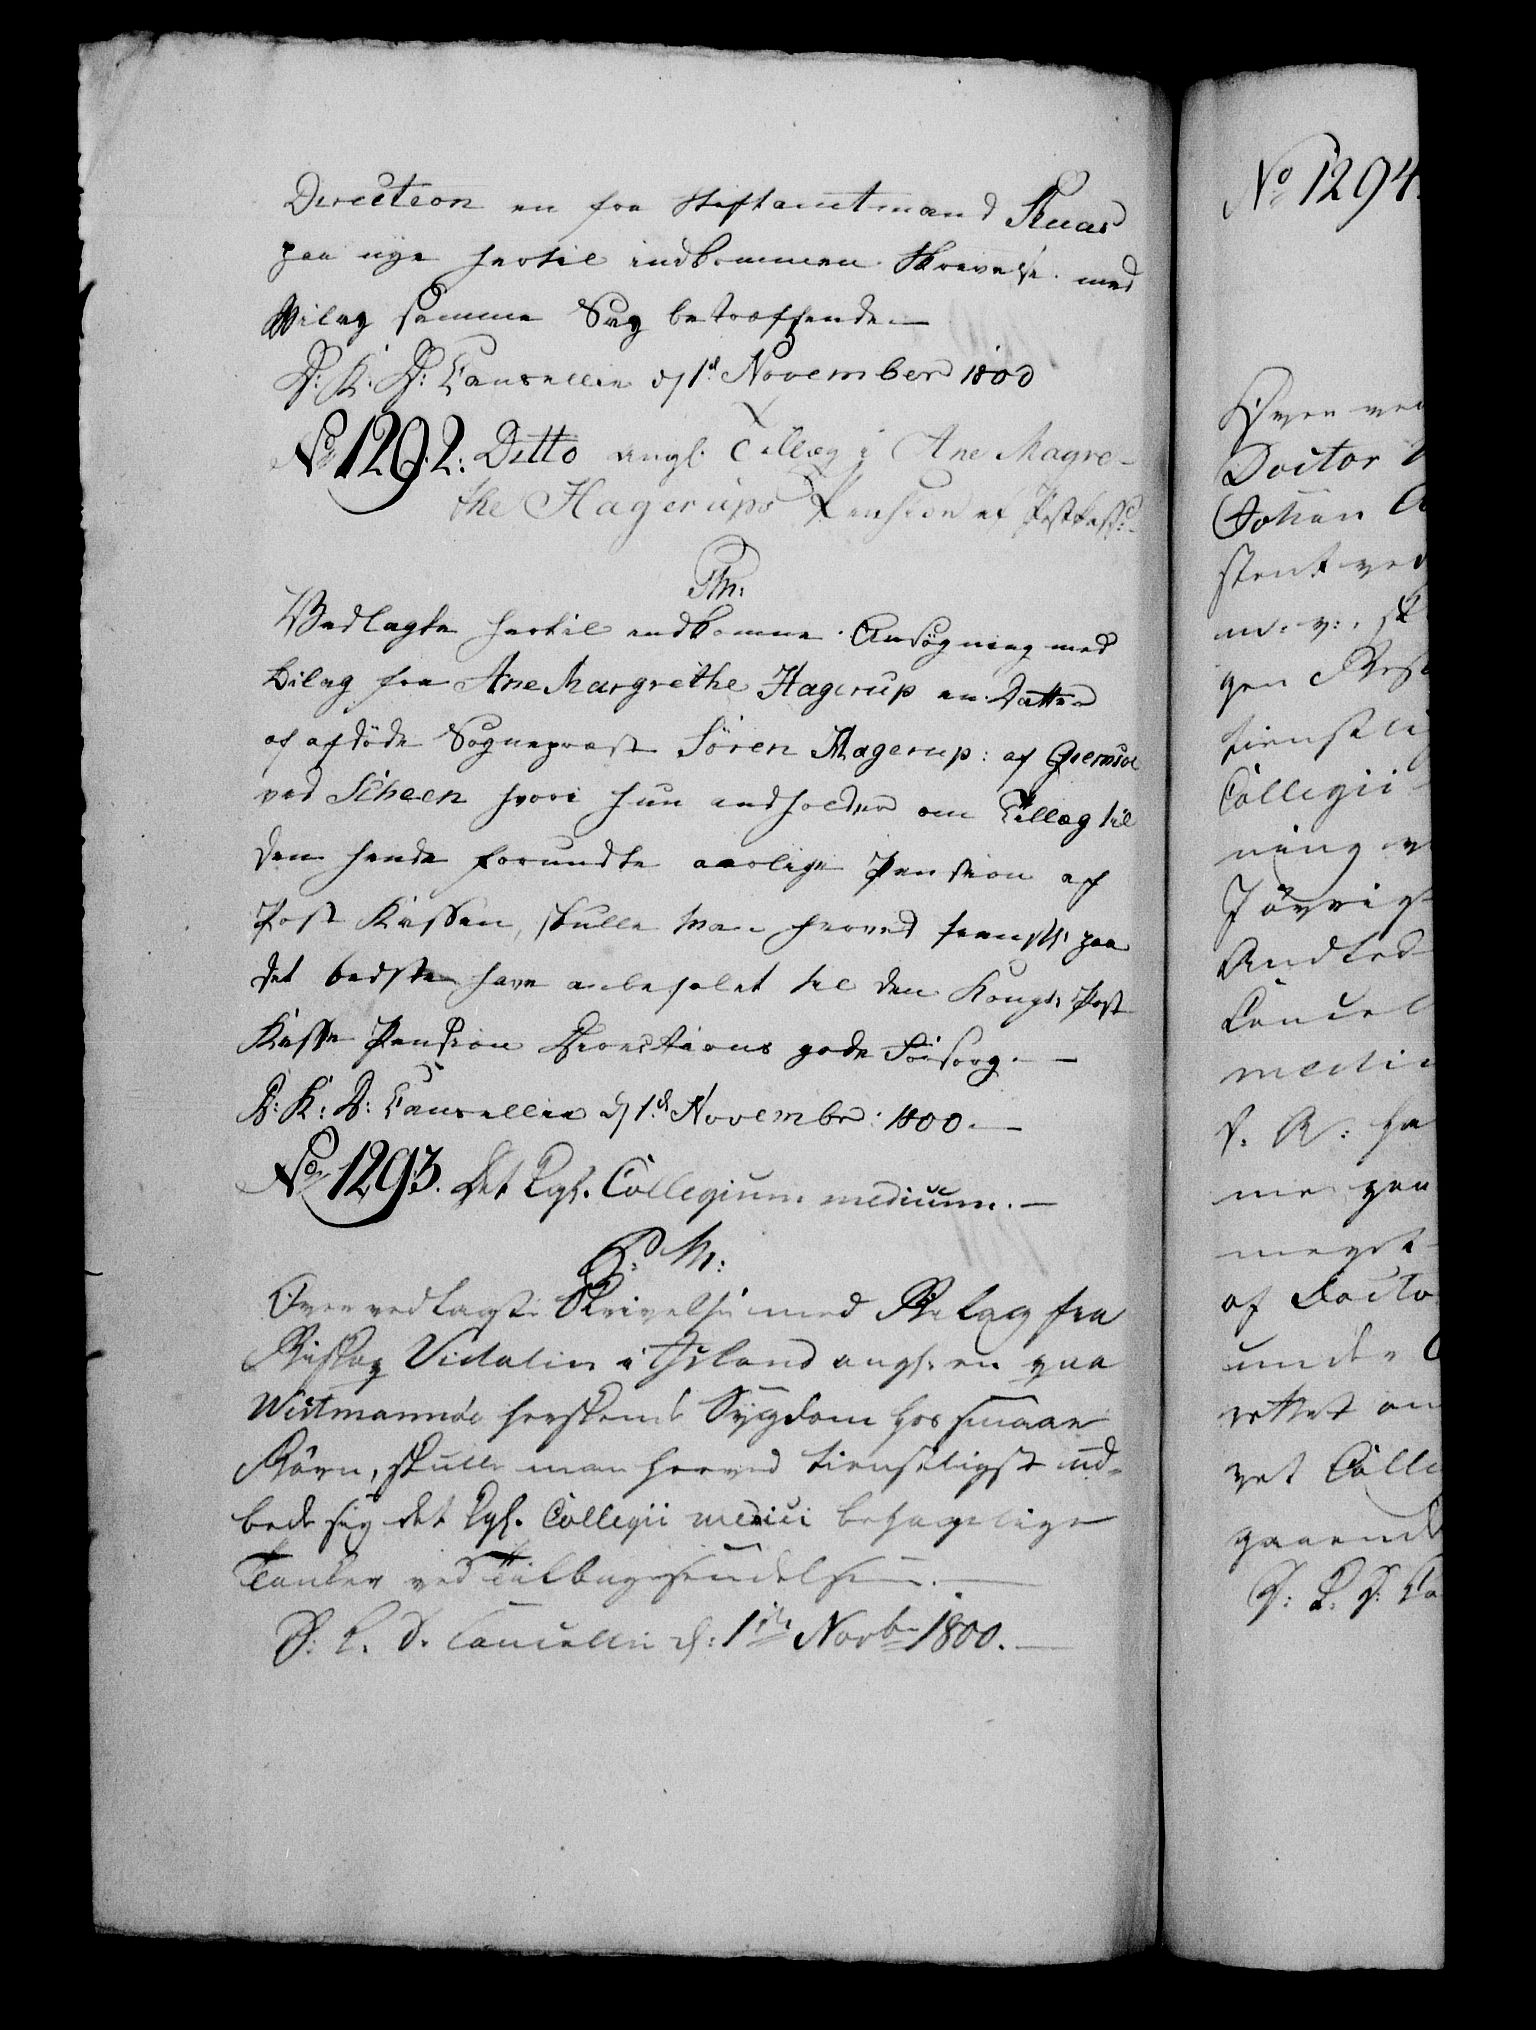 Direction en fra Stiftamtmand Kaas
paa nye hertil indkommen Skrivelse med
Bilag samme Sag betræffende. —
D: K: D: Cancellie d 1d November 1800
No 1292: Ditto angl. Tillæg i Ane Magre-
the Hagerups Pension af Postkass: -
Pm:
Vedlagte hertil indkomne Ansøgning med
Bilag fra Ane Margrethe Hagerup en Datter
af afdøde Sognepræst Søren Hagerup: af Gierpen
ved Scheen hvori hun andholder om Tillæg til
den hende forundte aarlige Pension af
Post Kassen, skulle Man herved tienstl: paa
det bedste have anbefalet til den Kongel: Post
Kasse Pension Directions gode Forsorg. —
D: K: D: Cancellie d 1d Novembr: 1800. —
No 1293. Det Kgl. Collegium medicum. —
P: M:
Over vedlagte Skrivelse med Bilag fra
Biskop Vidalin i Island angl. en paa
Westmannöe herskende Sygdom hos smaae
Börn, skulle man herved tienstligst ud-
bede sig det Kgl. Collegii medici behagelige
Tanker ved Tilbagesendelsen. —
D: K. D. Cancellie d: 1ste Novbr 1800. —
No 1294.
Over ved
Doctor
Johan
stent ved
m. v.. sk
gen
tienstlig
Collegii
ning
Jøvrigt
Andled
Cancel
medic
ha
me paa
meget
af Docto
under
rettet om
get Colle
gaaende
D: K. D: Ca